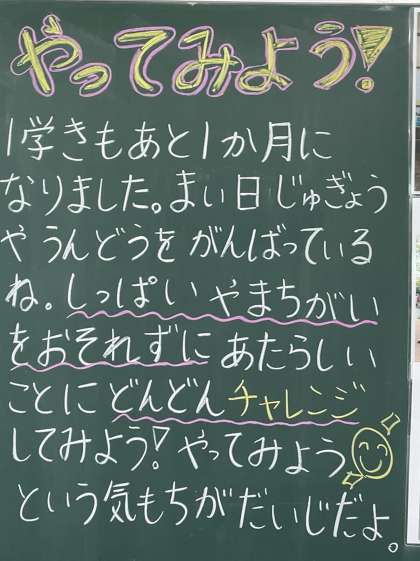 やってみよう!
1学きもあと1か月に
なりました。まい日じゅぎょう
やうんどうをがんばっている
ね。しっぱいやまちがい
をおそれずにあたらしい
ことにどんどんチャレンジ
してみよう!やってみよう
という気もちがだいじだよ。